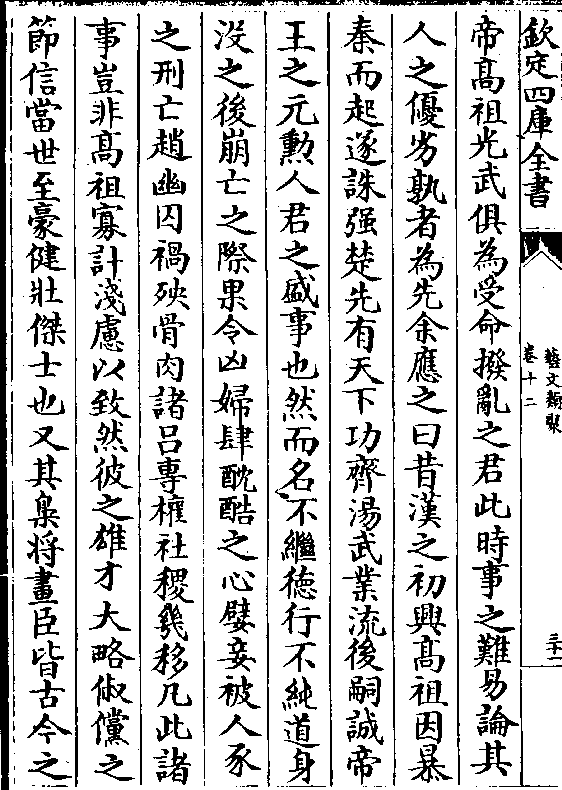 欽定四庫全書
藝文類聚
卷十二
三十一
帝髙祖光武俱為受命撥亂之君此時事之難易論其
人之優劣孰者為先余應之曰昔漢之初興髙祖因暴
秦而起遂誅强楚先有天下功齊湯武業流後嗣誠帝
王之元勲人君之盛事也然而名不繼徳行不純道身
没之後崩亡之際果令凶婦肆酖酷之心嬖妾被人豕
之刑亡趙幽囚禍殃骨肉諸吕專權社稷㡬移凡此諸
事豈非髙祖寡計淺慮以致然彼之雄才大略俶儻之
節信當世至豪健壯傑士也又其梟將畫臣皆古今之